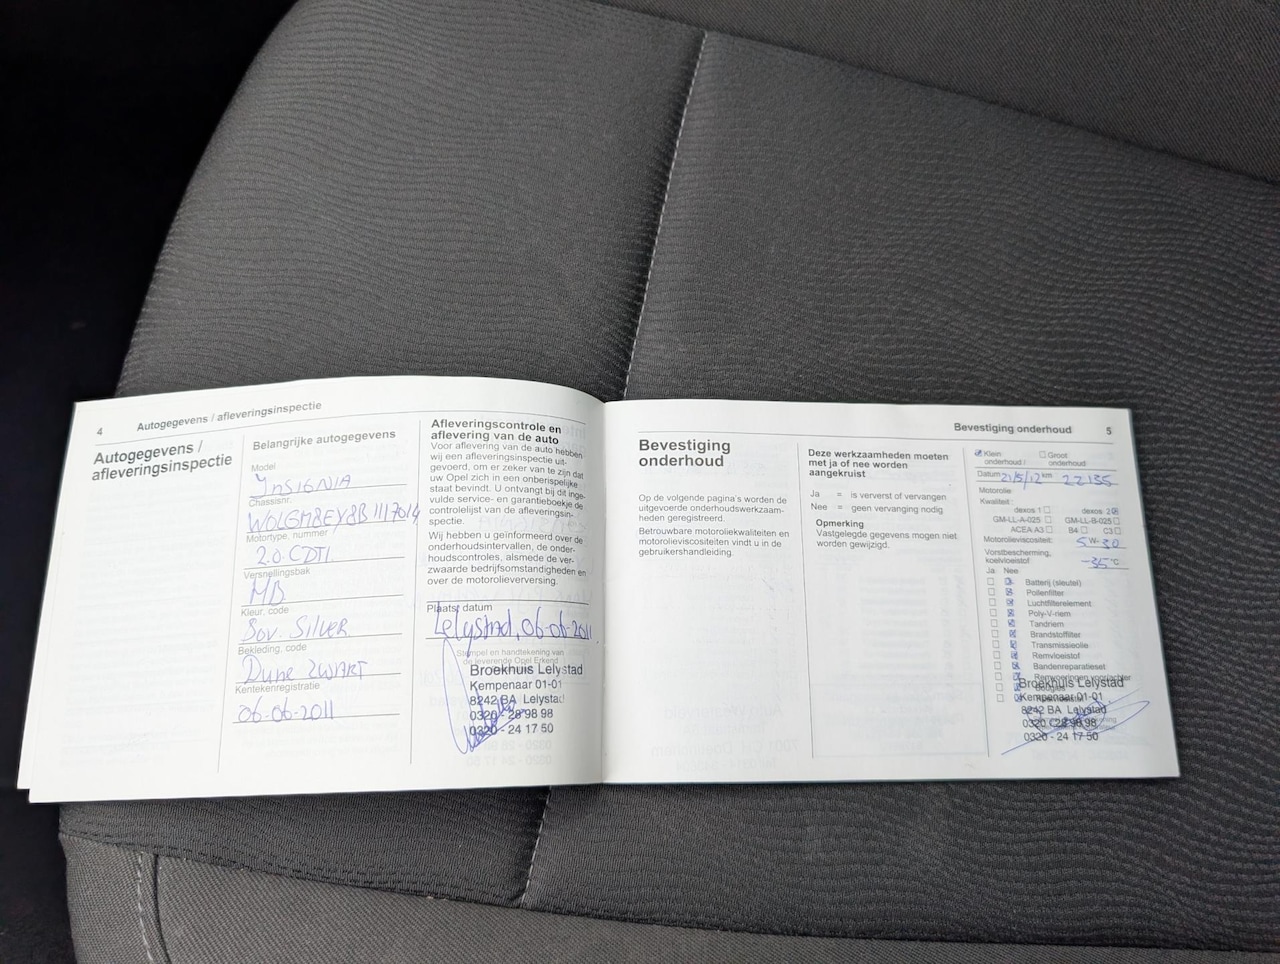 4
Autogegevens / afleveringsinspectie
Autogegevens /
afleveringsinspectie
Belangrijke autogegevens
Model
INSIGNIA
Chassisnr.
W0LGM8EY8B1117014
Motortype, nummer
2.0 CDTI
Versnellingsbak
MB
Kleur, code
Sov. SILVER
Bekleding, code
Dune ZWART
Kentekenregistratie
06-06-2011
Afleveringscontrole en
aflevering van de auto
Voor aflevering van de auto hebben
wij een afleveringsinspectie uit-
gevoerd, om er zeker van te zijn dat
uw Opel zich in een onberispelijke
staat bevindt. U ontvangt bij dit inge-
vulde service- en garantieboekje de
controlelijst van de afleveringsin-
spectie.
Wij hebben u geïnformeerd over de
onderhoudsintervallen, de onder-
houdscontroles, alsmede de ver-
zwaarde bedrijfsomstandigheden en
over de motorolieverversing.
Plaats, datum
Lelystad, 06-06-2011
Stempel en handtekening van
de leverende Opel Erkend
Broekhuis Lelystad
Kempenaar 01-01
8242 BA Lelystad
0320 - 28 98 98
0320 - 24 17 50
Bevestiging onderhoud
5
Bevestiging
onderhoud
Op de volgende pagina's worden de
uitgevoerde onderhoudswerkzaam-
heden geregistreerd.
Betrouwbare motoroliekwaliteiten en
motorolieviscositeiten vindt u in de
gebruikershandleiding.
Deze werkzaamheden moeten
met ja of nee worden
aangekruist
Ja = is ververst of vervangen
Nee = geen vervanging nodig
Opmerking
Vastgelegde gegevens mogen niet
worden gewijzigd.
Klein onderhoud / Groot onderhoud
Datum 21/5/12 km 22135
Motorolie
Kwaliteit:
dexos 1 dexos 2
GM-LL-A-025 GM-LL-B-025
ACEA A3 B4 C3
Motorolieviscositeit: 5W-30
Vorstbescherming,
koelvloeistof -35 °C
Ja Nee
Batterij (sleutel)
Pollenfilter
Luchtfilterelement
Poly-V-riem
Tandriem
Brandstoffilter
Transmissieolie
Remvloeistof
Bandenreparatieset
Remvoeringen voor/achter
Broekhuis Lelystad
Kempenaar 01-01
8242 BA Lelystad
0320 - 28 98 98
0320 - 24 17 50